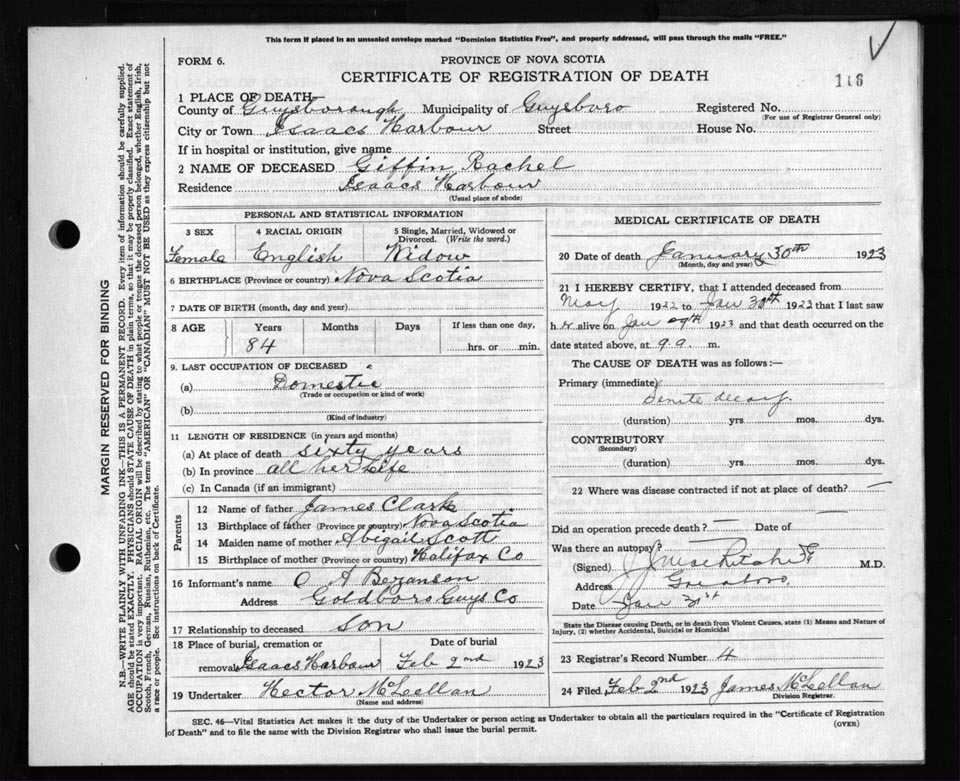 This form if placed in an unsealed envelope marked "Dominion Statistics Free", and properly addressed, will pass through the mails "FREE."
FORM 6.
PROVINCE OF NOVA SCOTIA
CERTIFICATE OF REGISTRATION OF DEATH
116
1 PLACE OF DEATH
County of Guysborough Municipality of Guysboro Registered No.
(For use of Registrar General only)
City or Town Isaacs Harbour Street House No.
If in hospital or institution, give name
2 NAME OF DECEASED Giffin Rachel
Residence Isaacs Harbour
(Usual place of abode)
PERSONAL AND STATISTICAL INFORMATION
3 SEX 4 RACIAL ORIGIN 5 Single, Married, Widowed or Divorced. (Write the word.)
Female English Widow
6 BIRTHPLACE (Province or country) Nova Scotia
7 DATE OF BIRTH (month, day and year)
8 AGE Years Months Days If less than one day,
84 hrs. or min.
9. LAST OCCUPATION OF DECEASED
(a) Domestic
(Trade or occupation or kind of work)
(b)
(Kind of industry)
11 LENGTH OF RESIDENCE (in years and months)
(a) At place of death sixty years
(b) In province all her Life
(c) In Canada (if an immigrant)
Parents
12 Name of father James Clark
13 Birthplace of father (Province or country) Nova Scotia
14 Maiden name of mother Abigail Scott
15 Birthplace of mother (Province or country) Halifax Co
16 Informant's name O A Bezanson
Address Goldboro Guys Co
17 Relationship to deceased son
18 Place of burial, cremation or removal Isaacs Harbour Date of burial Feb 2nd 1923
19 Undertaker Hector McLellan
(Name and address)
MEDICAL CERTIFICATE OF DEATH
20 Date of death January 30th 1923
(Month, day and year)
21 I HEREBY CERTIFY, that I attended deceased from
May 1922 to Jan 30th 1923 that I last saw
h er alive on Jan 1923 and that death occurred on the
date stated above, at 9 a. m.
The CAUSE OF DEATH was as follows:—
Primary (immediate)
Senile decay
(duration) yrs mos. dys.
CONTRIBUTORY
(Secondary)
(duration) yrs. mos. dys.
22 Where was disease contracted if not at place of death? —
Did an operation precede death? — Date of —
Was there an autopsy?
(Signed) M.D.
Address
Date Jan 31st
State the Disease causing Death, or in death from Violent Causes, state (1) Means and Nature of Injury, (2) whether Accidental, Suicidal or Homicidal
23 Registrar's Record Number 4
24 Filed Feb 2nd 1923 James McLellan
Division Registrar.
SEC. 46—Vital Statistics Act makes it the duty of the Undertaker or person acting as Undertaker to obtain all the particulars required in the "Certificate of Registration
of Death" and to file the same with the Division Registrar who shall issue the burial permit.
(OVER)
MARGIN RESERVED FOR BINDING
N.B.—WRITE PLAINLY WITH UNFADING INK—THIS IS A PERMANENT RECORD. Every item of information should be carefully supplied.
AGE should be stated EXACTLY. PHYSICIANS should STATE CAUSE OF DEATH in plain terms, so that it may be properly classified. Exact statement of
OCCUPATION is very important. RACIAL ORIGIN will be described by stating to what people or tongue the deceased person belonged, whether English, Irish,
Scotch, French, German, Russian, Ruthenian, etc. The terms "AMERICAN" OR "CANADIAN" MUST NOT BE USED as they express citizenship but not
a race or people. See instructions on back of Certificate.